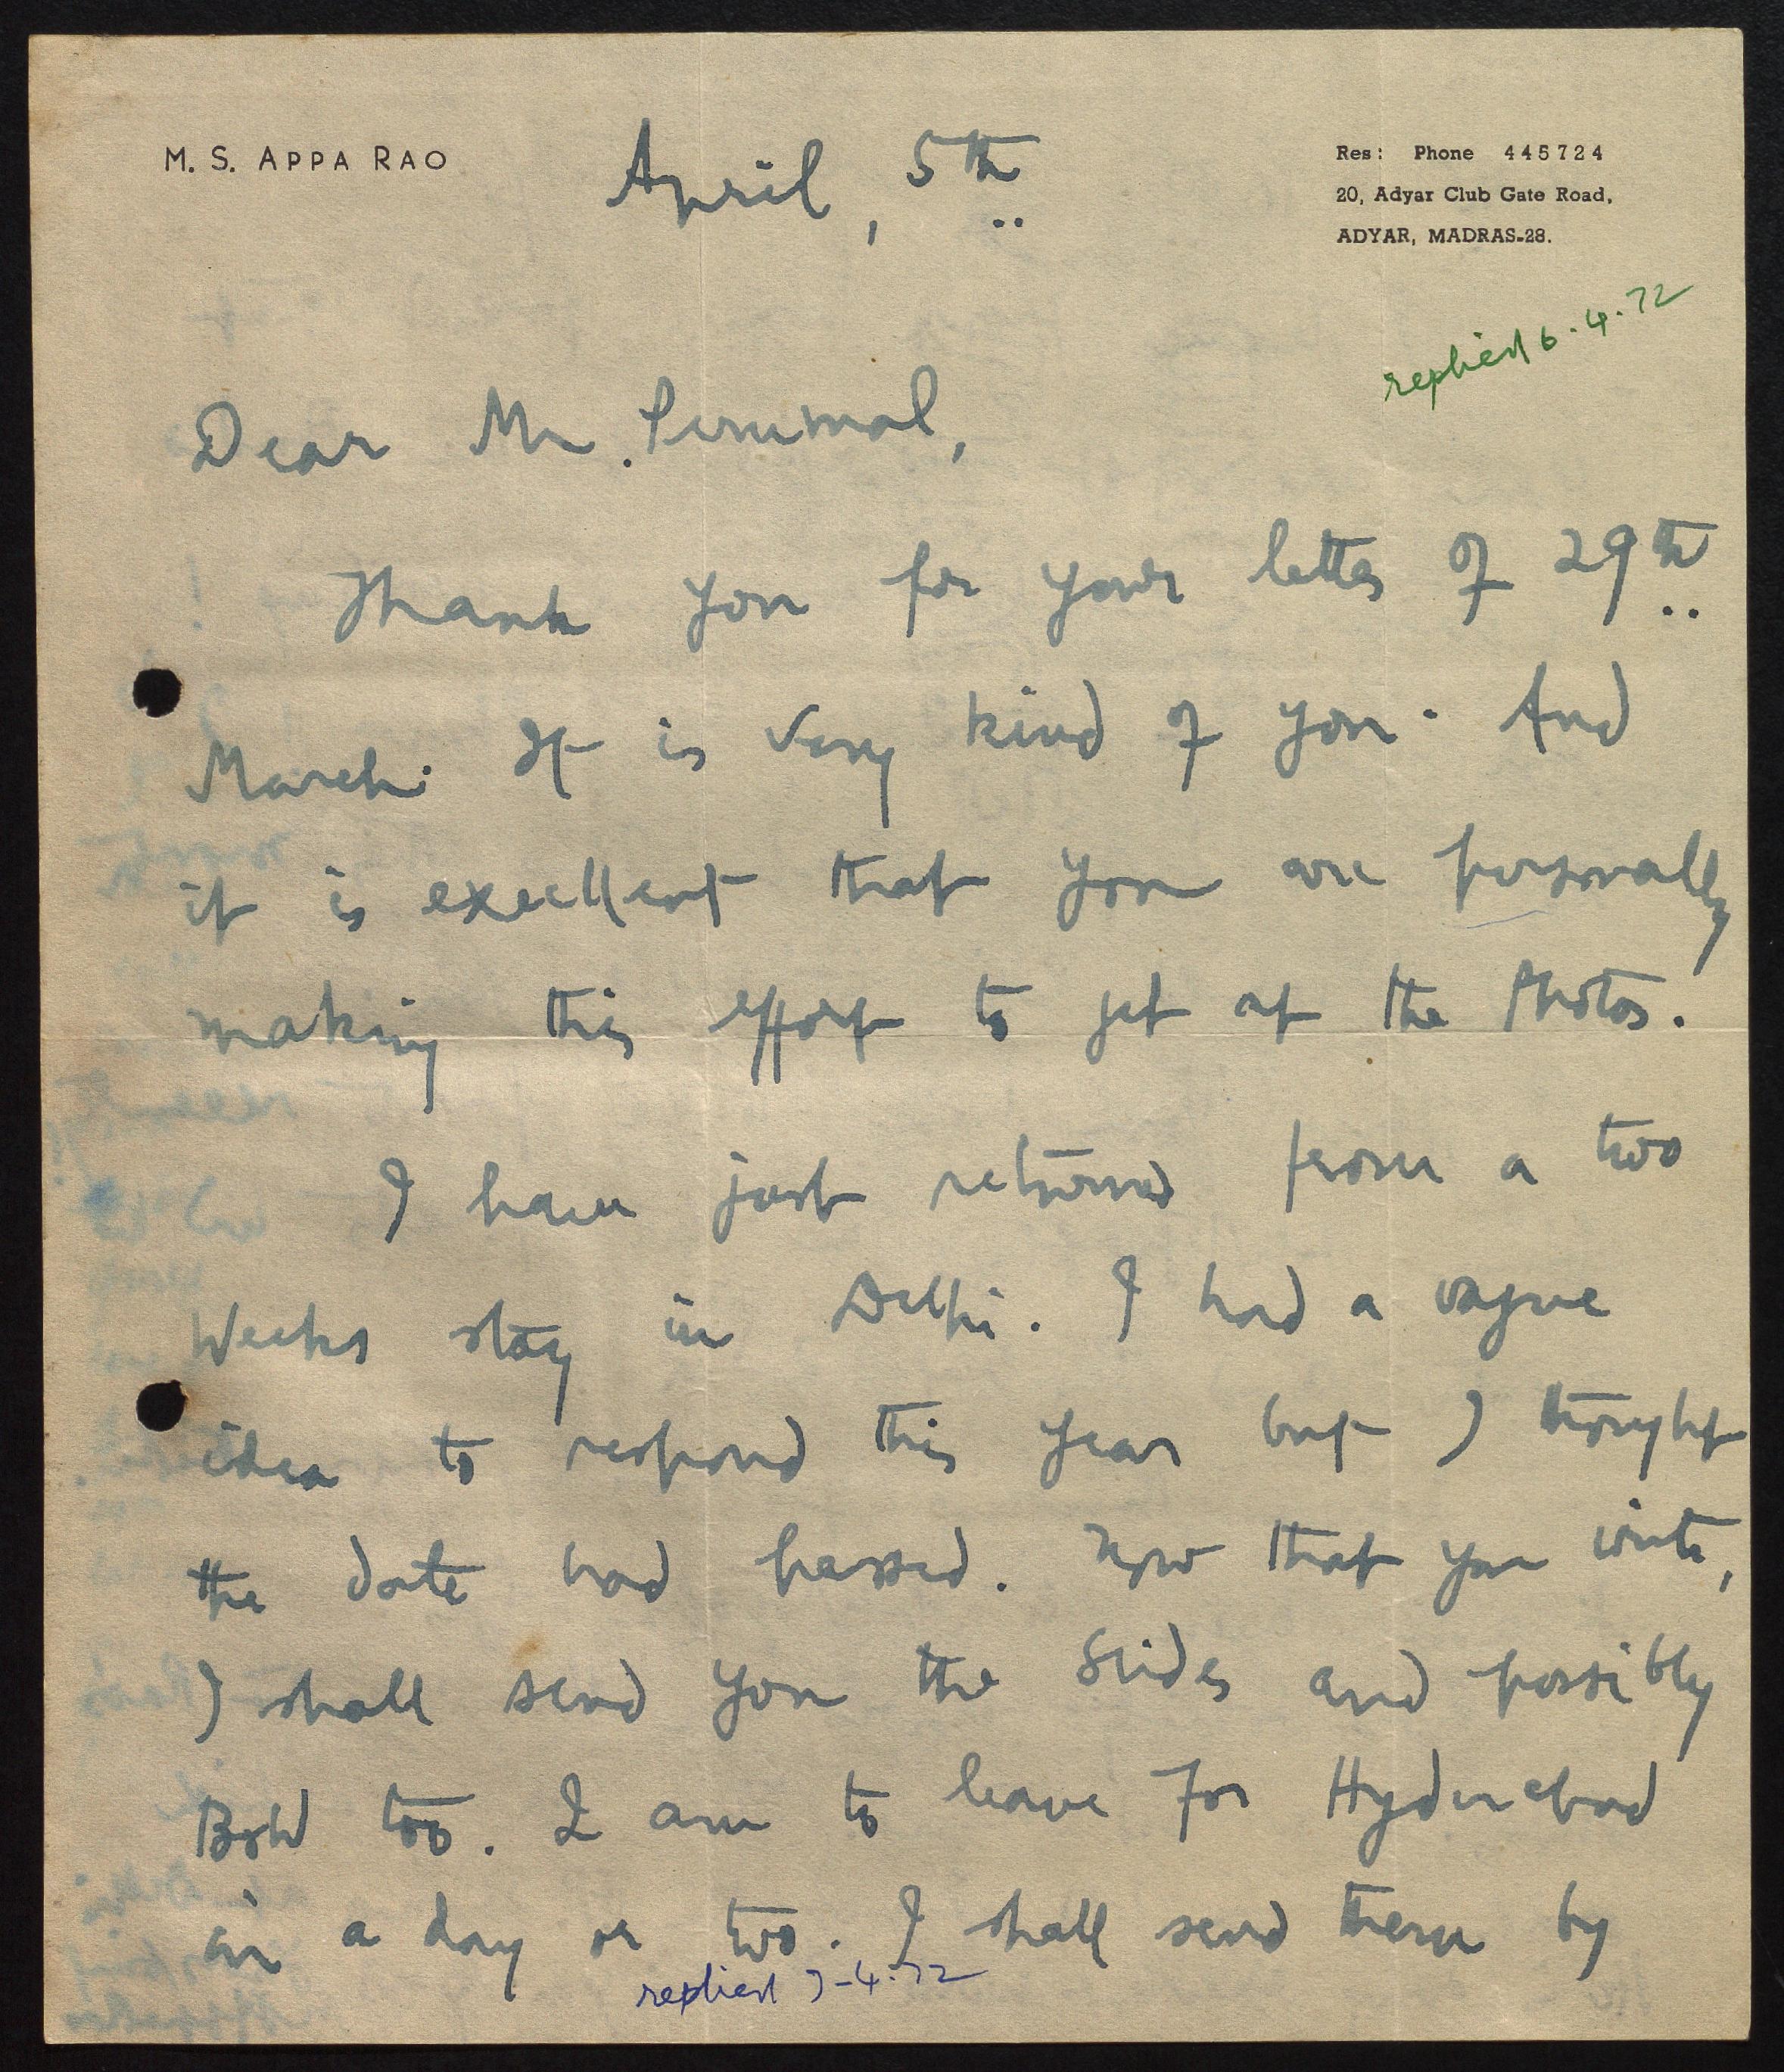 M. S. APPA RAO
April, 5th
Res: Phone 445724
20, Adyar Club Gate Road,
ADYAR, MADRAS-28.
replied 6.4.72
Dear Mr. Perumal,
Thank you for your letter of 29th
March. It is very kind of you. And
it is excellent that you are personally
making this effort to get at the Photos.
I have just returned from a two
Weeks stay in Delhi. I had a vague
idea to respond this year but I thought
the date had passed. Now that you write,
I shall send you the Slides and possibly
B&W too. I am to leave for Hyderabad
in a day or two. I shall send them by
replied 7-4-72